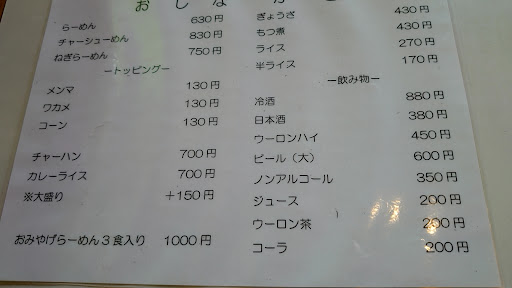 おしな
らーめん 630円
チャーシューめん 830円
ねぎらーめん 750円
ートッピングー
メンマ 130円
ワカメ 130円
コーン 130円
チャーハン 700円
カレーライス 700円
※大盛り +150円
おみやげらーめん3食入り 1000円
ぎょうざ 430円
もつ煮 430円
ライス 270円
半ライス 170円
ー飲み物ー
冷酒 880円
日本酒 380円
ウーロンハイ 450円
ビール(大) 600円
ノンアルコール 350円
ジュース 200円
ウーロン茶 200円
コーラ 200円